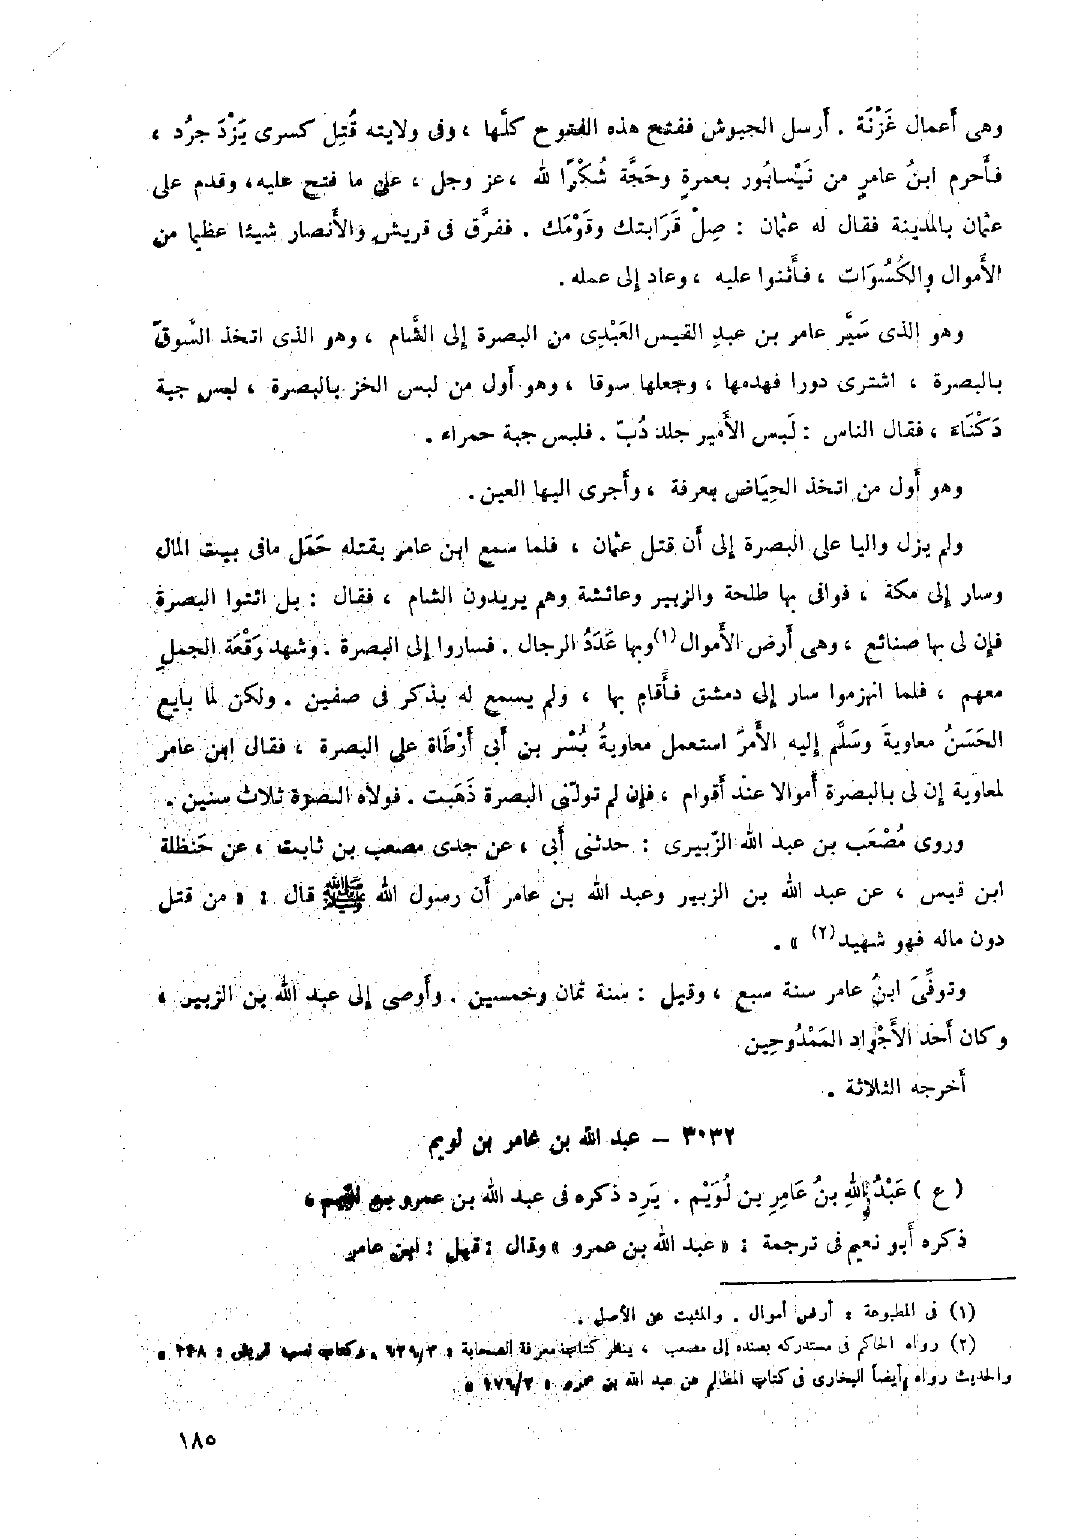 وهى أَعمال غَزْنَة . أَرسل الجيوش ففتح هذه الفتوح كلَّها ، وفى ولايته قُتِل كسرى يَزْدَ جرُد ،
فأَحرم ابنُ عامرٍ من نَيْسابُور بعمرةٍ وحَجَّة شُكْرًا لله ، عز وجل ، على ما فتح عليه، وقدم على
عثمان بالمدينة فقال له عثمان : صِلْ قَرَابتك وقَوْمَك . ففرَّق فى قريش والأَنصار شيئا عظيما من
الأَموال والكُسُوَات ، فأَثنوا عليه ، وعاد إلى عمله .
وهو الذى سَيَّر عامر بن عبدِ القيس العَبْدِى من البصرة إلى الشَّام ، وهو الذى اتخذ السُّوقَ
بالبصرة ، اشترى دورا فهدمها ، وجعلها سوقا ، وهو أَول من لبس الخز بالبصرة ، لبس جبة
دَكْنَاءَ ، فقال الناس : لَبِس الأَمير جلد دُبّ . فلبس جبة حمراء .
وهو أَول من اتخذ الحِيَاض بعرفة ، وأَجرى اليها العين .
ولم يزل واليا على البصرة إلى أَن قتل عثمان ، فلما سمع ابن عامر بقتله حَمَل مافى بيت المال
وسار إلى مكة ، فوافى بها طلحة والزبير وعائشة وهم يريدون الشام ، فقال : بل ائتوا البصرة
فإن لى بها صنائع ، وهى أَرض الأَموال(١) وبها عَدَدُ الرجال . فساروا إلى البصرة . وشهد وَقْعَة الجمل
معهم ، فلما انهزموا سار إلى دمشق فأَقام بها ، ولم يسمع له بذكر فى صفين . ولكن لما بايع
الحَسَنُ معاويةَ وسَلَّم إليه الأَمرَ استعمل معاويةُ بُسْر بن أَبى أَرْطَاة على البصرة ، فقال ابن عامر
لمعاوية إن لى بالبصرة أَموالا عند أَقوام ، فإن لم تولّنى البصرة ذَهَبت . فولاه البصرة ثلاث سنين .
وروى مُصْعَب بن عبد الله الزّبيرى : حدثنى أَبى ، عن جدى مصعب بن ثابت ، عن حَنظلة
ابن قيس ، عن عبد الله بن الزبير وعبد الله بن عامر أَن رسول الله ﷺ قال : « من قتل
دون ماله فهو شهيد(٢) » .
وتوفِّىَ ابنُ عامر سنة سبع ، وقيل : سنة ثمان وخمسين . وأَوصى إلى عبد الله بن الزبير ،
وكان أَحَد الأَجْواد المَمْدُوحِين
أَخرجه الثلاثة .
٣٠٣٢ – عبد الله بن عامر بن لويم
( ع ) عَبْدُ اللهِ بنُ عَامِرِ بن لُوَيْم . يَرِد ذكره فى عبد الله بن عمرو بن ،
ذكره أَبو نعيم فى ترجمة : « عبد الله بن عمرو » وقال : قيل : ابن عامر
(١) فى المطبوعة : أرض أموال . والمثبت عن الأصل .
(٢) رواه الحاكم فى مستدركه بسنده إلى مصعب ، ينظر كتاب معرفة الصحابة : ٦٣٩/٣ ، وكتاب نسب قريش : ١٤٨ .
والحديث رواه أيضاً البخارى فى كتاب المظالم عن عبد الله بن عمرو : ١٧٩/٣ .
١٨٥